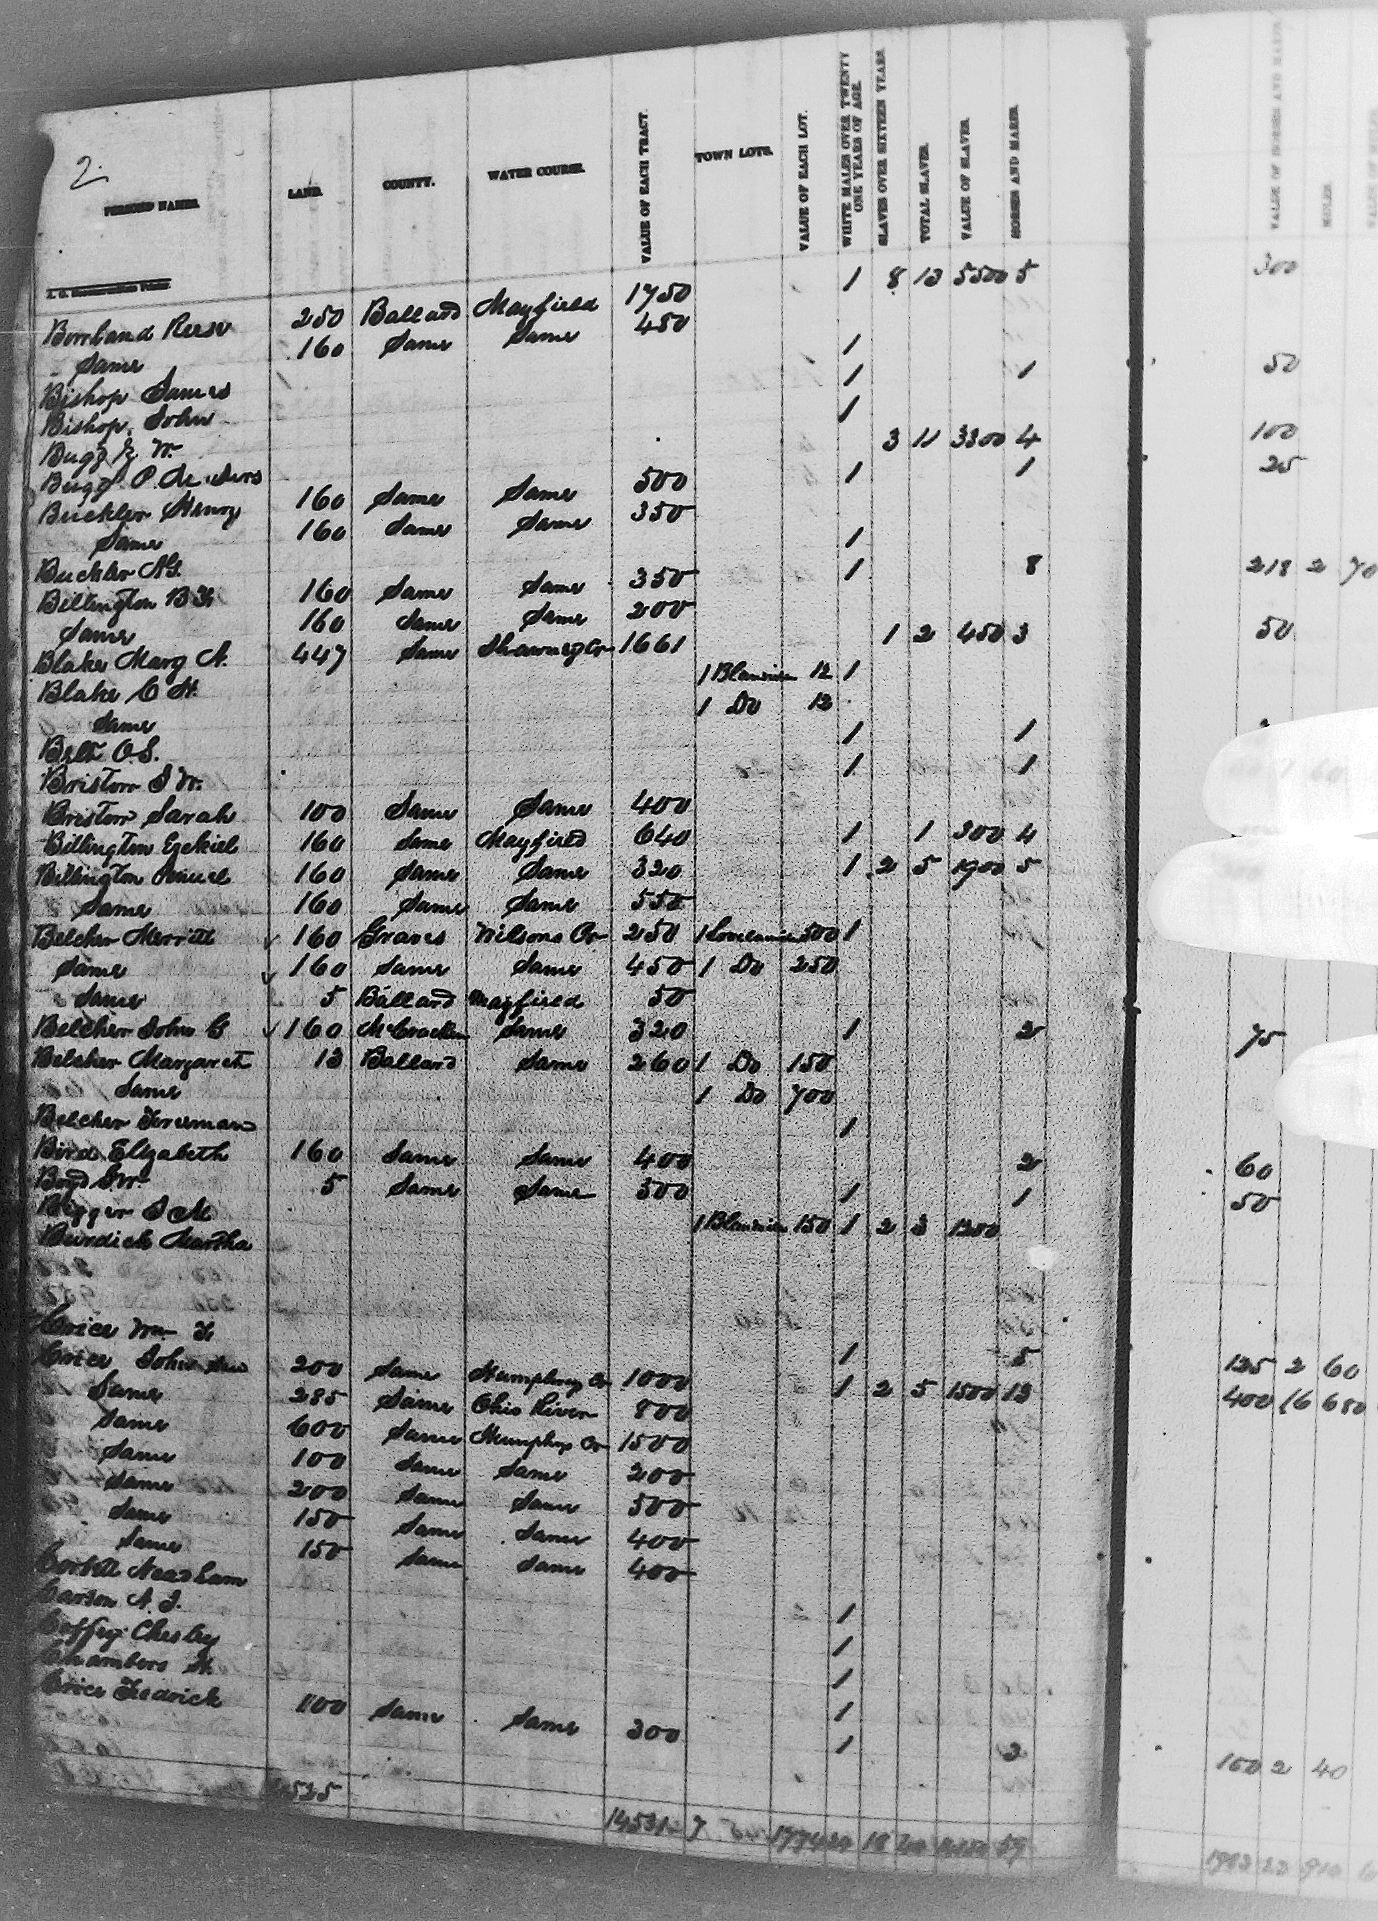 2.
PERSONS' NAMES. LAND. COUNTY. WATER COURSE. VALUE OF EACH TRACT. TOWN LOTS. VALUE OF EACH LOT. WHITE MALES OVER TWENTY ONE YEARS OF AGE. SLAVES OVER SIXTEEN YEARS. TOTAL SLAVES. VALUE OF SLAVES. HORSES AND MARES. VALUE OF HORSES AND MARES. MULES.
Reese 250 Ballard Mayfield 1750 1 8 13 5500 5 300
Same 160 Same Same 450
Bishop James 1
Bishop John 1 1 50
Bugg W. 1
Bugg 3 11 3300 4 100
Buckler Henry 160 Same Same 500 1 1 25
Same 160 Same Same 350
Buckler 1
Billington 160 Same Same 350 1 8 218 2 70
Same 160 Same Same 200
Blake Mary A. 447 Same 1661 1 2 450 3 50
Blake C H. 1 12 1
Same 1 Do 12
Belt O. S. 1 1
Bristow J W. 1 1
Bristow Sarah 100 Same Same 400
Billington Ezekiel 160 Same Mayfield 640 1 1 300 4
Billington 160 Same Same 320 1 2 5 1900 5
Same 160 Same Same 550
Belcher Merritt 160 Graves Wilsons Cr 250 1 500 1
Same 160 Same Same 450 1 Do 250
Same 5 Ballard Mayfield 50
Belcher John C 160 McCracken Same 320 1 2 75
Belcher Margaret 13 Ballard Same 260 1 Do 150
Same 1 Do 700
Belcher Freeman 1
Bird Elizabeth 160 Same Same 400 2 60
Boyd 5 Same Same 300 1 1 50
Bigger J M 1 150 1 2 3 1200
Burdick Martha
Grice Wm F 1 5 125 2 60
Grice John 200 Same Humphrey Cr 1000 1 2 5 1500 13 400 16 680
Same 285 Same Ohio River 800
Same 600 Same Humphrey Cr 1500
Same 100 Same Same 200
Same 200 Same Same 500
Same 150 Same Same 400
Same 150 Same Same 400
Corbett Needham 1
Carson A. J. 1
Coffey Chesley 1
Chambers 1
Grice Fedrick 100 Same Same 300 1 3 100 2 40
7 18 59